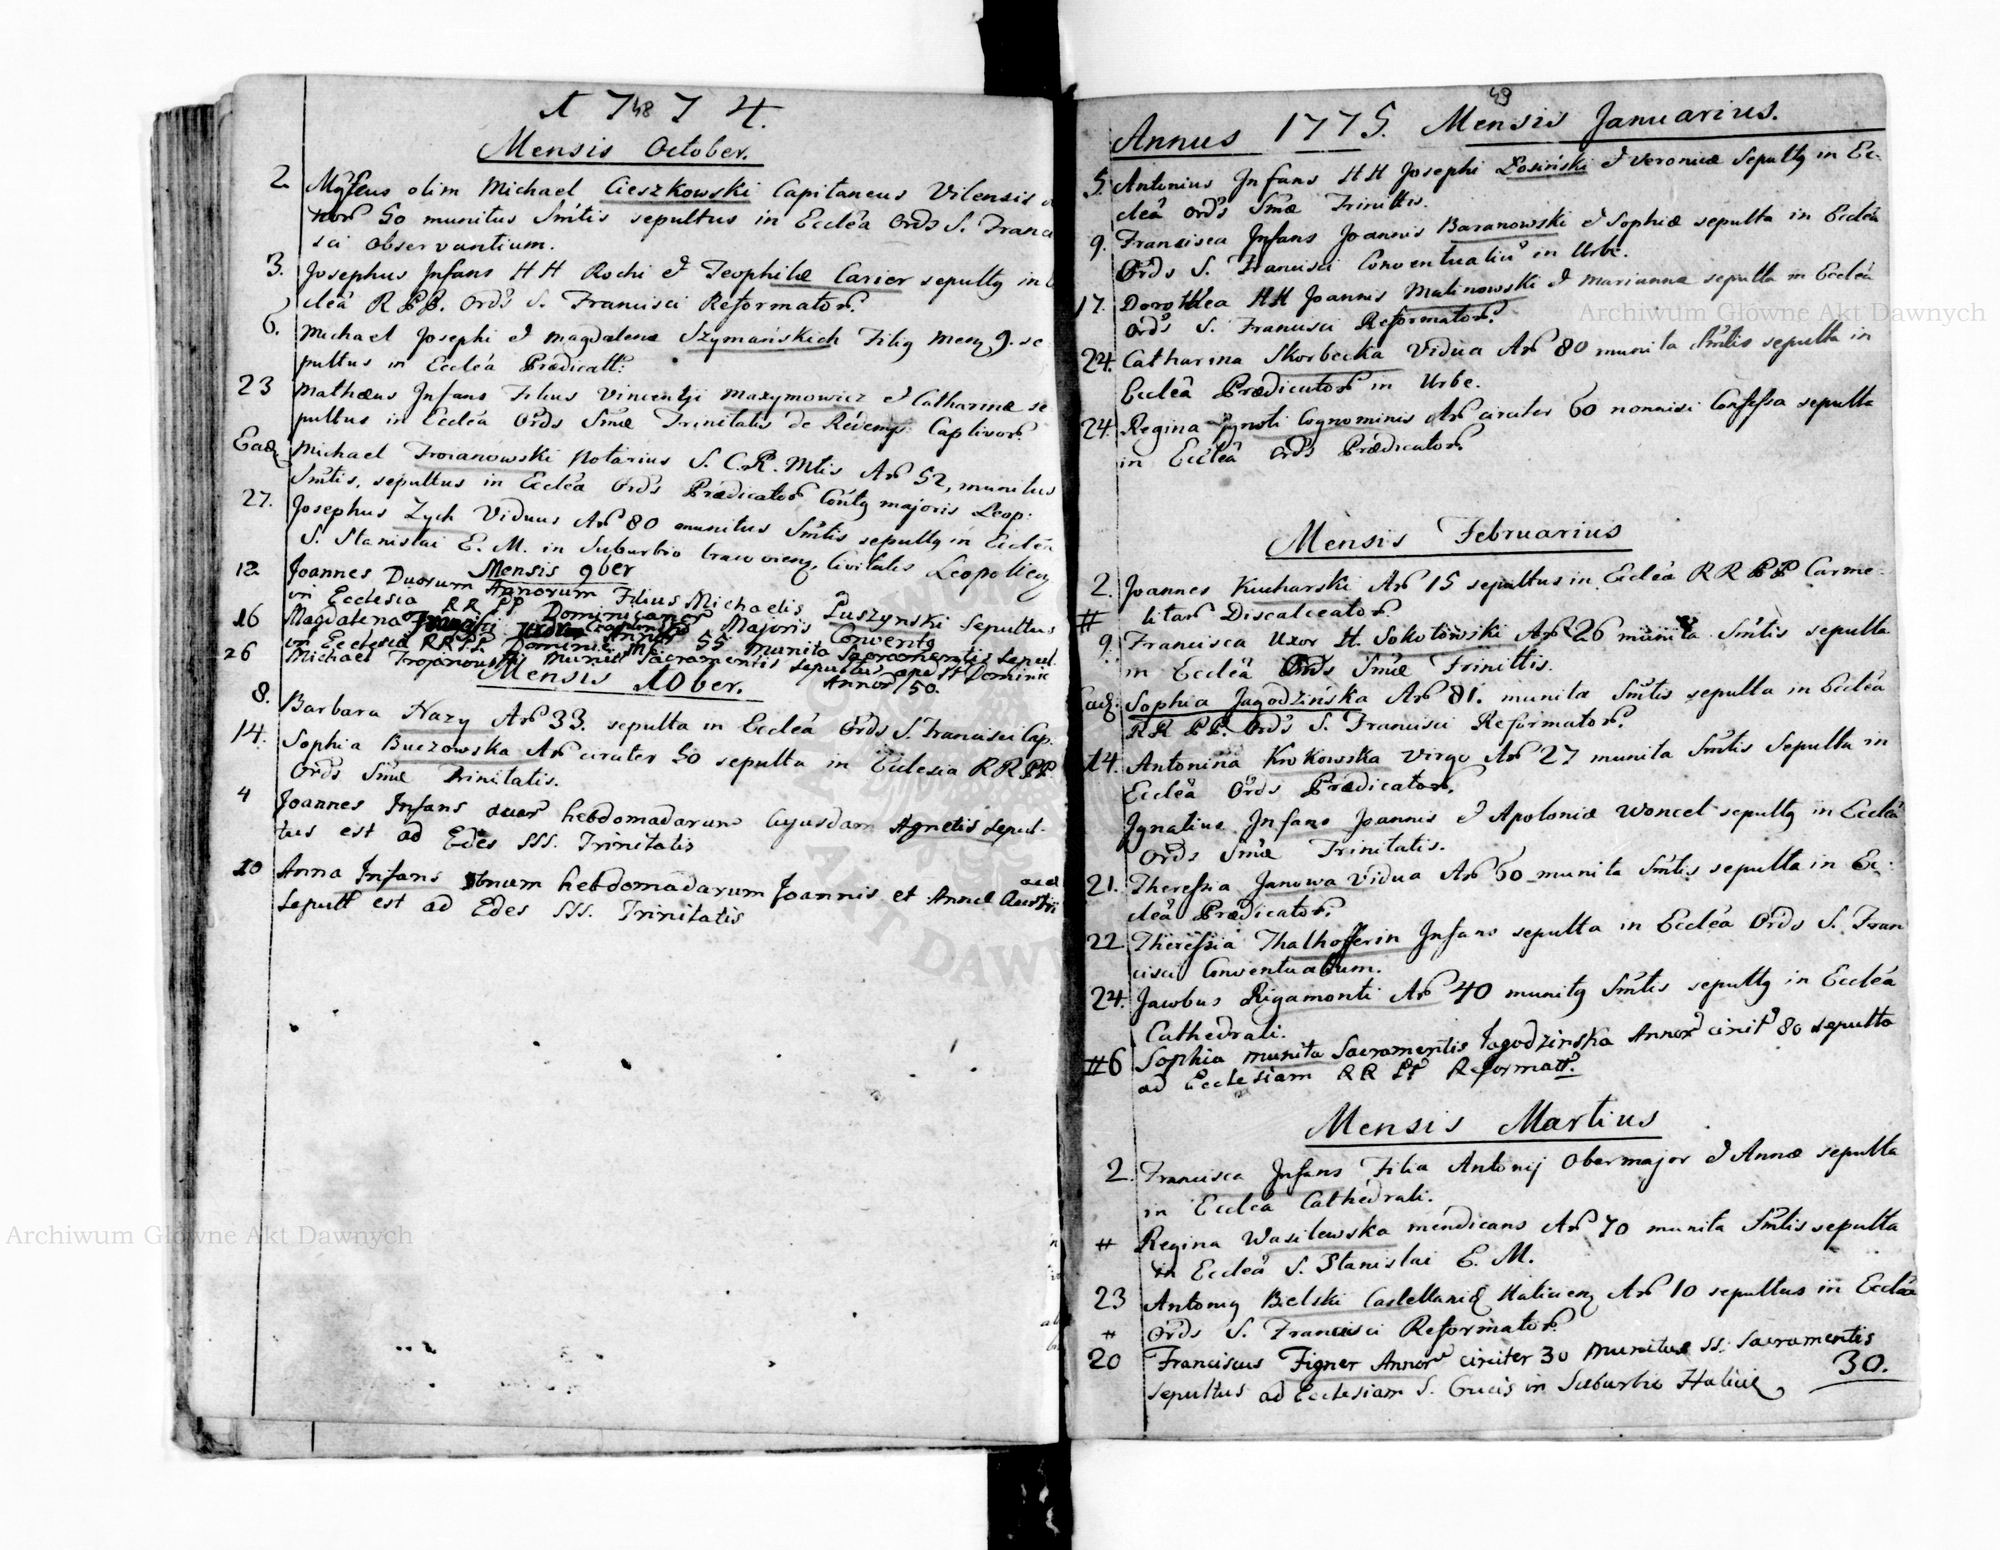 A 7 48 7 4.
Mensis October.
2 Mgfcus olim Michael Cieszkowski Capitaneus Vilensis
50 munitus Smtis sepultus in Ecclea Ords S. Franci
sci observantium.
3. Josephus Infans HH Rochi et Teophilæ Carier sepultq in
cleâ R PP. Ords S. Francisci Reformator.
6. Michael Josephi et Magdalenæ Szymańskich Filiq Menq 9. se
pultus in Eccleâ Prædicatt:
23 Mathæus Infans Filius Vincentji Maxymowicz et Catharinæ se
pultus in Eccleâ Ords Smæ Trinitatis de Redemp. Captivor.
Ead Michael Troianowski Notarius S. C. R. Mtis An 52, munitus
Smtis, sepultus in Ecclea Ords Prædicator Contq majoris Leop.
27. Josephus Zych Viduus An 80 munitus Smtis sepultq in Ecclea
S. Stanislai E. M. in Suburbio Civitatis Leopolieq
Mensis 9ber
12 Joannes Duorum Annorum Filius Michaelis Łuszynski Sepultus
in Ecclesia RR PP Dominicanor Majoris Convento
16 Magdalena Annor 55 munita Sacramentis Sepul.
in Ecclesia RR PP Dominic
26 Michael Trojanowski Munit Sacramentis Sepultus apud St Dominic
Annor 50.
Mensis 10ber.
8. Barbara Nazy An 33. sepulta in Eccleâ Ords S. Francisci Cap.
14. Sophia Buczowska An circiter 50 sepulta in Eclesia RR PP
Ords Smæ Trinitatis.
4 Joannes Infans duar hebdomadarum Cujusdam Agnetis Sepul-
tus est ad Edes SSS. Trinitatis
10 Anna Infans hebdomadarum Joannis et Annæ
Sepult est ad Edes SSS. Trinitatis
49
Annus 1775. Mensis Januarius.
5. Antonius Infans HH Josephi Łosiński et Veronicæ Sepultq in Ec-
cleâ Ords Smæ Trinittis.
9. Francisca Infans Joannis Baranowski et Sophiæ sepulta in Eccleâ
Ords S. Francisci Conventualiu in Urbe.
17. Dorothea HH Joannis Malinowski et Mariannæ sepulta in Eccleâ
Ords S. Francisci Reformator.
24. Catharina Skorbecka Vidua An 80 munita Smtis sepulta in
Eccleâ Prædicator in Urbe.
24. Regina Ignoti Cognominis An circiter 60 nonnisi Confessa sepulta
in Eccleâ Ords Prædicator.
Mensis Februarius
2. Joannes Kucharski An 15 sepultus in Eccleâ RR PP Carme-
# litar Discalceator.
9. Francisca Uxor H. Sokołowski An 26 munita Smtis sepulta
in Eccleâ Ords Smæ Trinittis.
Eadq: Sophia Jagodzińska An 81. munita Smtis sepulta in Eccleâ
RR PP. Ords S. Francisci Reformator.
14. Antonina Krokowska Virgo An 27 munita Smtis Sepulta in
Eccleâ Ords Prædicator.
Ignatius Infans Joannis et Apoloniæ Woncel sepultq in Eccleâ
Ords Smæ Trinitatis.
21. Theressia Janowa Vidua An 50 munita Smtis sepulta in Ec-
cleâ Prædicator.
22. Theressia Thalhofferin Infans sepulta in Eccleâ Ords S. Fran
cisci Conventualium.
24. Jacobus Rigamonti An 40 munitq Smtis sepultq in Eccleâ
Cathedrali.
#6 Sophia munita Sacramentis Jagodzinska Annor circit 80 sepulta
ad Ecclesiam RR PP Reformatt.
Mensis Martius
2. Francisca Infans Filia Antonij Obermajor et Annæ sepulta
in Ecclea Cathedrali.
# Regina Wasilewska mendicans An 70 munita Smtis sepulta
in Eccleâ S. Stanislai E. M.
23 Antoniq Belski Castellanid Halicienq An 10 sepultus in Eccleâ
# Ords S. Francisci Reformator.
20 Franciscus Figner Annor circiter 30 munitus SS. Sacramentis
sepultus ad Ecclesiam S. Crucis in Suburbio Halicie
30.
Archiwum Główne Akt Dawnych
Archiwum Główne Akt Dawnych